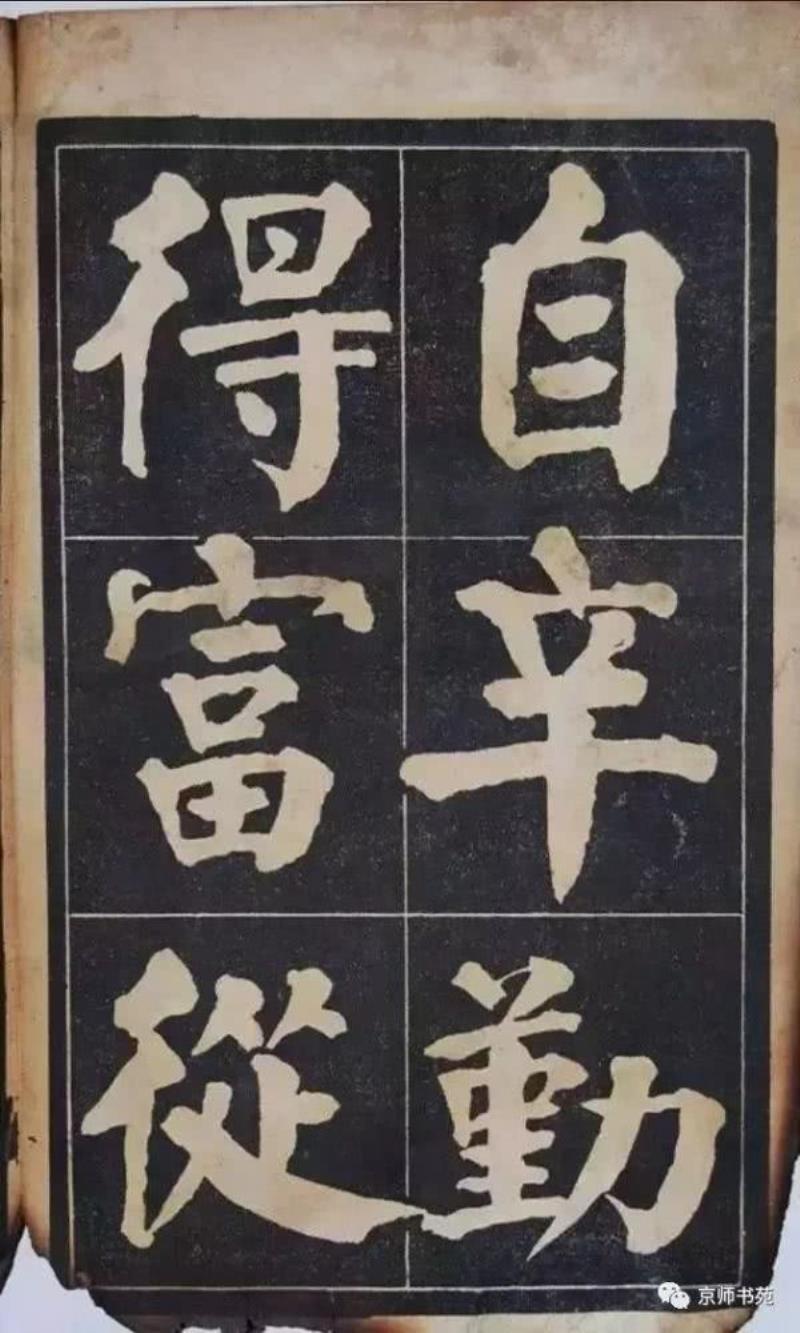 自辛勤
得富從
京师书苑